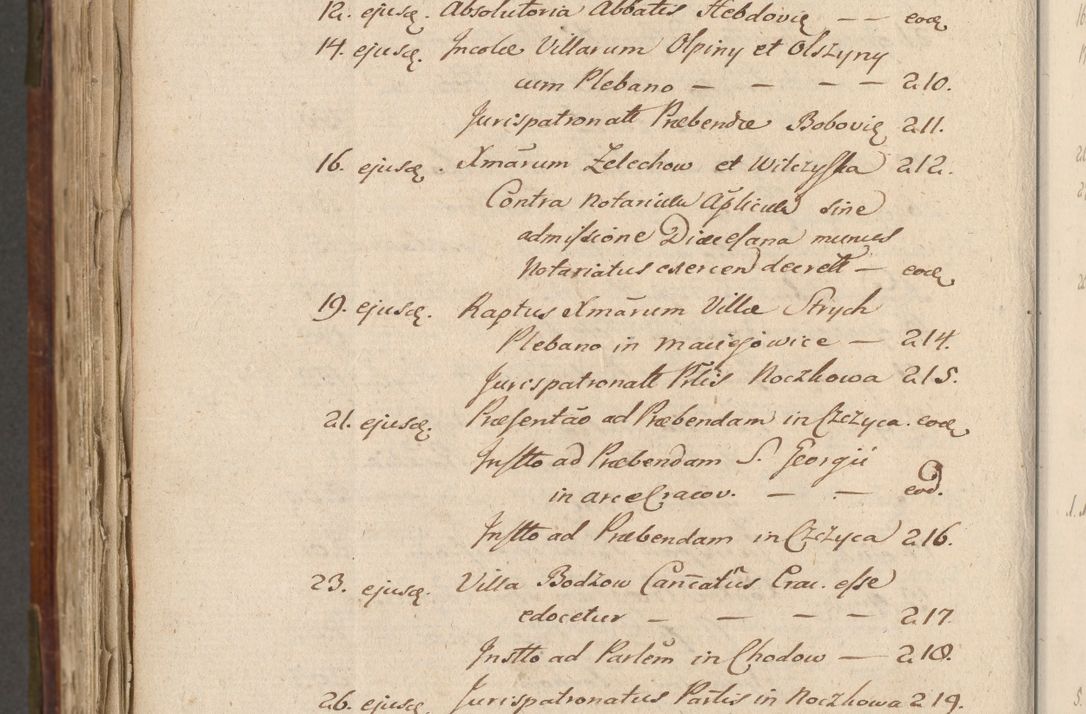 12. ejusq. Absolutoria Abbatis Hebdovię — — eoq
14. ejusq. Incolæ Villarum Olpiny et Olszyny
cum Plebano — — — — 210.
Jurispatronatt Præbendæ Bobovię 211.
16. ejusq. Xmārum Zelechow et Wilczyska 212.
Contra Notariū Aplicū sine
admissione Diæcesana munus
Notariatus exercen decrett — eoq
19. ejusq. Raptus Xmārum Villæ Strych
Plebano in Maciejowice — 214.
Jurispatronatt Prtis Noczkowa 215.
21. ejusq. Præsentāo ad Præbendam in Czczyca. eoq
Instto ad Præbendam S. Georgii
in arce Cracov. — — eod.
Instto ad Præbendam in Czczyca 216.
23. ejusq. Villa Bodzow Cancatūs Crac. esse
edocetur — — — — 217.
Instto ad Parlem in Chodow — 218.
26. ejusq. Jurispatronatus Partis in Noczkowa 219.